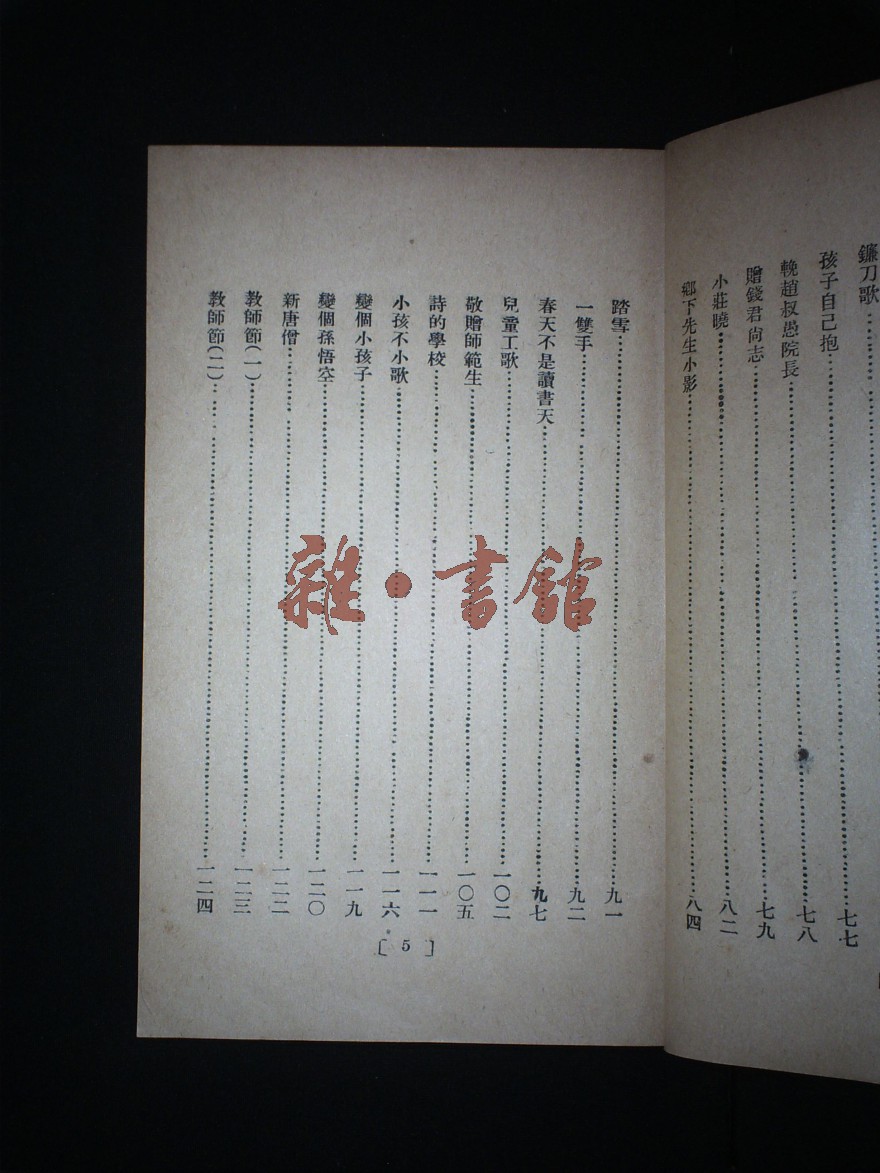 鐮刀歌
孩子自己抱 七七
輓趙叔愚院長 七八
贈錢君尚志 七九
小莊曉 八二
鄉下先生小影 八四
踏雪 九一
一雙手 九二
春天不是讀書天 九七
兒童工歌 一〇二
敬贈師範生 一〇五
詩的學校 一一一
小孩不小歌 一一六
變個小孩子 一一九
變個孫悟空 一二〇
新唐僧 一二二
教師節(一) 一二三
教師節(二) 一二四
[ 5 ]
雜·書館